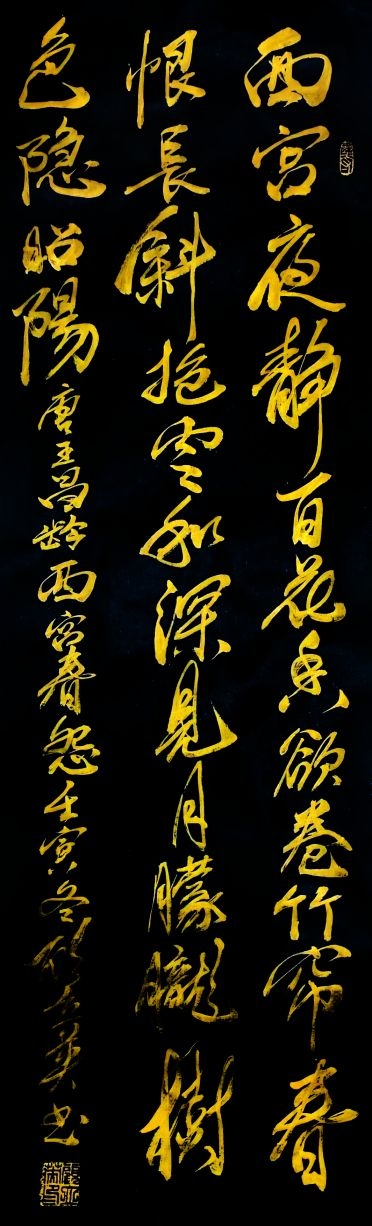 西宫夜静百花香欲卷竹帘春
恨長斜抱雲和深見月朦朧樹
色隐昭陽
唐王昌龄西宫春怨壬寅冬英书